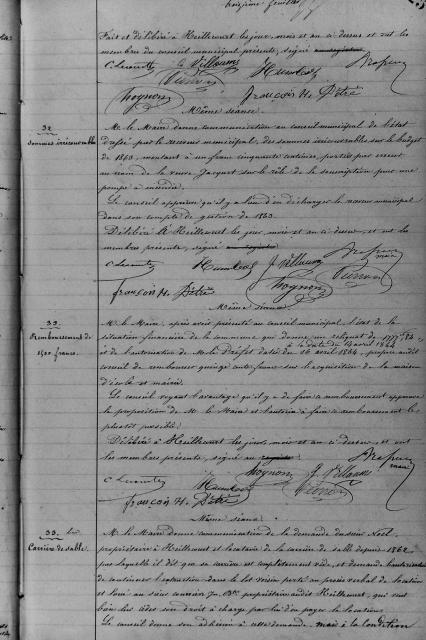 Fait et délibéré à Heillecourt les jour, mois et an ci dessus et ont les
membres du conseil municipal présents, signé
C. Lecomte J. Villaume
François H. Pêtre
Même séance.
32
Sommes irrécouvrables
M. le Maire donne communication au conseil municipal de l'état
dressé par le receveur municipal, des sommes irrécouvrables sur le budget
de 1863, montant à un franc cinquante centimes, portée par erreur
au nom de la veuve Jacquot sur le rôle de la souscription pour une
pompe à incendie.
Le conseil approuve qu'il y a lieu d'en décharger le receveur municipal
dans son compte de gestion de 1863.
Délibéré à Heillecourt les jour, mois et an ci dessus et ont les
membres présents, signé
C. Lecomte J. Villaume
maire
François H. Pêtre
Même séance
33
Remboursement de
1500 francs.
M. le Maire, après avoir présenté au conseil municipal l'état de la
situation financière de la commune qui donne un reliquat de
à la date du 14 avril 1864
et de l'autorisation de M. le Préfet datée du 16 avril 1864, propose audit
conseil de rembourser quinze cents francs sur l'acquisition de la maison
d'école et mairie.
Le conseil voyant l'avantage qu'il y a de faire ce remboursement approuve
la proposition de M. le Maire et l'autorise à faire ce remboursement le
plus tôt possible.
Délibéré à Heillecourt les jour, mois et an ci dessus et ont
les membres présents, signé au
maire
C. Lecomte J. Villaume
François H. Pêtre
Même séance
33 bis
Carrière de sable.
M. le Maire donne communication de la demande du sieur Noël
propriétaire à Heillecourt et locataire de la carrière de sable depuis 1862
par laquelle il dit que sa carrière est complètement vide, et demande l'autorisation
de continuer l'extraction dans le lot voisin porté au procès verbal de location
et loué au sieur propriétaire audit Heillecourt, qui veut
bien lui céder son droit à charge par lui d'en payer la location.
Le conseil donne son adhésion à cette demande, mais à la condition